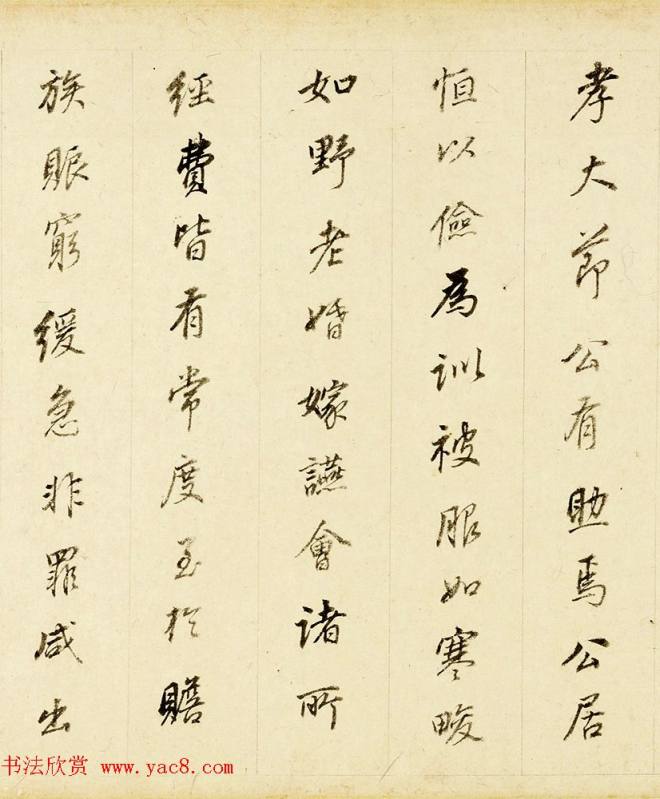 孝大節公有助焉公居
恒以儉為訓被服如寒畯
如野老婚嫁讌會諸所
經費皆有常度至於贍
族賑窮緩急非罪咸出
书法欣赏 www.yac8.com